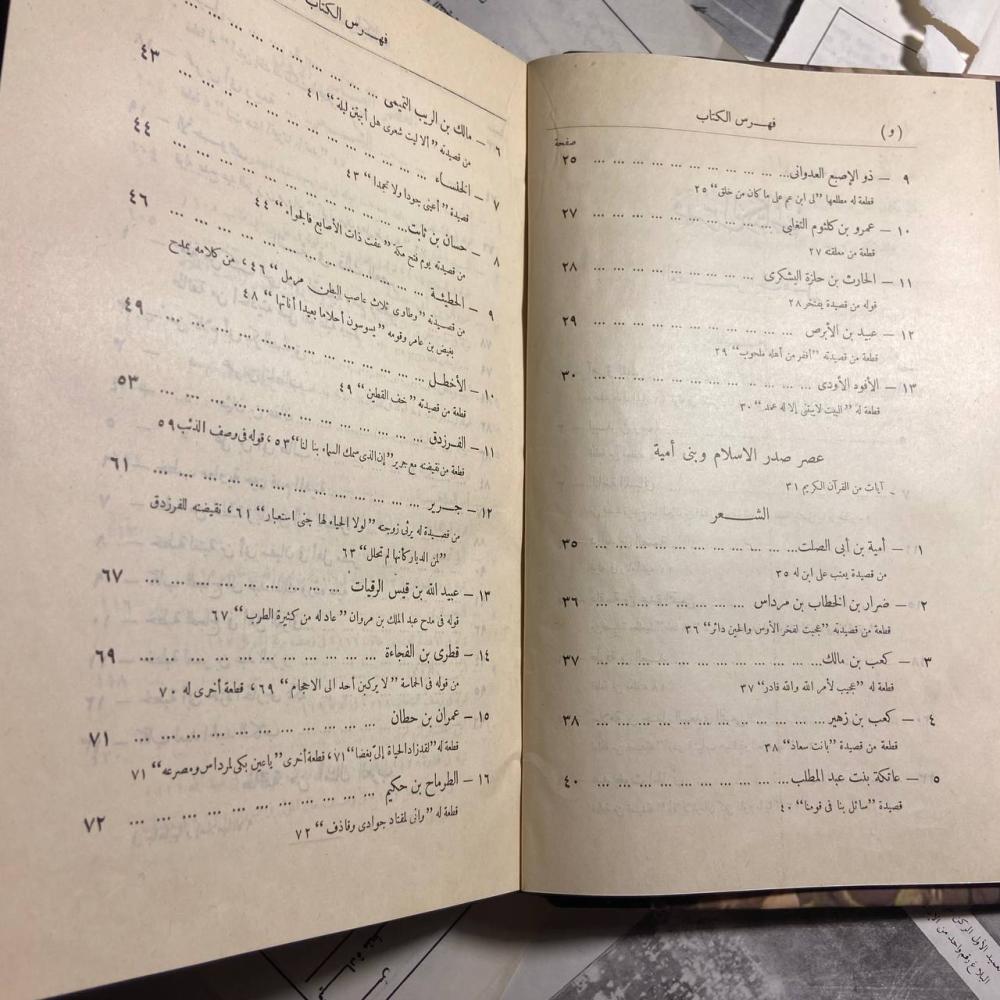 (و)
فهرس الكتاب
صفحة
٩ — ذو الإصبع العدوانى... ... ... ... ... ... ... ... ... ٢٥
قطعة له مطلعها "لى ابن عم على ما كان من خلق" ٢٥
١٠ — عمرو بن كلثوم التغلبى ... ... ... ... ... ... ... ... ٢٧
قطعة من معلقته ٢٧
١١ — الحارث بن حلزة اليشكرى ... ... ... ... ... ... ... ٢٨
قوله من قصيدة يفتخر ٢٨
١٢ — عبيد بن الأبرص ... ... ... ... ... ... ... ... ... ٢٩
قطعة من قصيدته "أقفر من أهله ملحوب" ٢٩
١٣ — الأفوه الأودى ... ... ... ... ... ... ... ... ... ٣٠
قطعة له "البيت لا يبتنى إلا له عمد" ٣٠
عصر صدر الاسلام وبنى أمية
آيات من القرآن الكريم ٣١
الشعر
١ — أمية بن أبى الصلت... ... ... ... ... ... ... ... ... ٣٥
من قصيدة يعتب على ابن له ٣٥
٢ — ضرار بن الخطاب بن مرداس ... ... ... ... ... ... ... ٣٦
قطعة من قصيدته "عجبت لفخر الأوس والحين دائر" ٣٦
٣ — كعب بن مالك... ... ... ... ... ... ... ... ... ... ٣٧
قطعة له "عجيب لأمر الله والله قادر" ٣٧
٤ — كعب بن زهير... ... ... ... ... ... ... ... ... ... ٣٨
قطعة من قصيدة "بانت سعاد" ٣٨
٥ — عاتكة بنت عبد المطلب ... ... ... ... ... ... ... ... ٤٠
قصيدة "سائل بنا فى قومنا" ٤٠
فهرس الكتاب
٦ — مالك بن الريب التميمى ... ... ... ... ... ... ...
من قصيدته "ألا ليت شعرى هل أبيتن ليلة" ٤١
٧ — الخنساء ... ... ... ... ... ... ... ... ... ٤٣
قصيدة "أعينى جودا ولا تجمدا" ٤٣
٨ — حسان بن ثابت... ... ... ... ... ... ... ... ٤٤
من قصيدته يوم فتح مكة "عفت ذات الأصابع فالجواء" ٤٤
٩ — الحطيئة ... ... ... ... ... ... ... ... ... ٤٦
من قصيدته "وطاوى ثلاث عاصب البطن مرمل" ٤٦، من كلامه يمدح
بغيض بن عامر وقومه "يسوسون أحلاما بعيدا أناتها" ٤٨
١٠ — الأخطل ... ... ... ... ... ... ... ... ... ٤٩
قطعة من قصيدته "خف القطين" ٤٩
١١ — الفرزدق ... ... ... ... ... ... ... ... ... ٥٣
قطعة من نقيضته مع جرير "إن الذى سمك السماء بنا لنا" ٥٣، قوله فى وصف الذئب ٥٩
١٢ — جرير ... ... ... ... ... ... ... ... ... ... ٦١
من قصيدة له يرثى زوجته "لولا الحياء لها جنى استعبار" ٦١، نقيضته للفرزدق
"لمن الديار كأنها لم تحلل" ٦٣
١٣ — عبيد الله بن قيس الرقيات ... ... ... ... ... ... ... ٦٧
قوله فى مدح عبد الملك بن مروان "عاد له من كثيرة الطرب" ٦٧
١٤ — قطرى بن الفجاءة ... ... ... ... ... ... ... ... ٦٩
من قوله فى الحماسة "لا يركبن أحد الى الاحجام" ٦٩، قطعة أخرى له ٧٠
١٥ — عمران بن حطان ... ... ... ... ... ... ... ... ٧١
قطعة له "لقد زاد الحياة إلىّ بغضا" ٧١، قطعة أخرى "ياعين بكى لمرداس ومصرعه" ٧١
١٦ — الطرماح بن حكيم ... ... ... ... ... ... ... ... ٧٢
قطعة له "وانى لمقتاد جوادى وقاذف" ٧٢